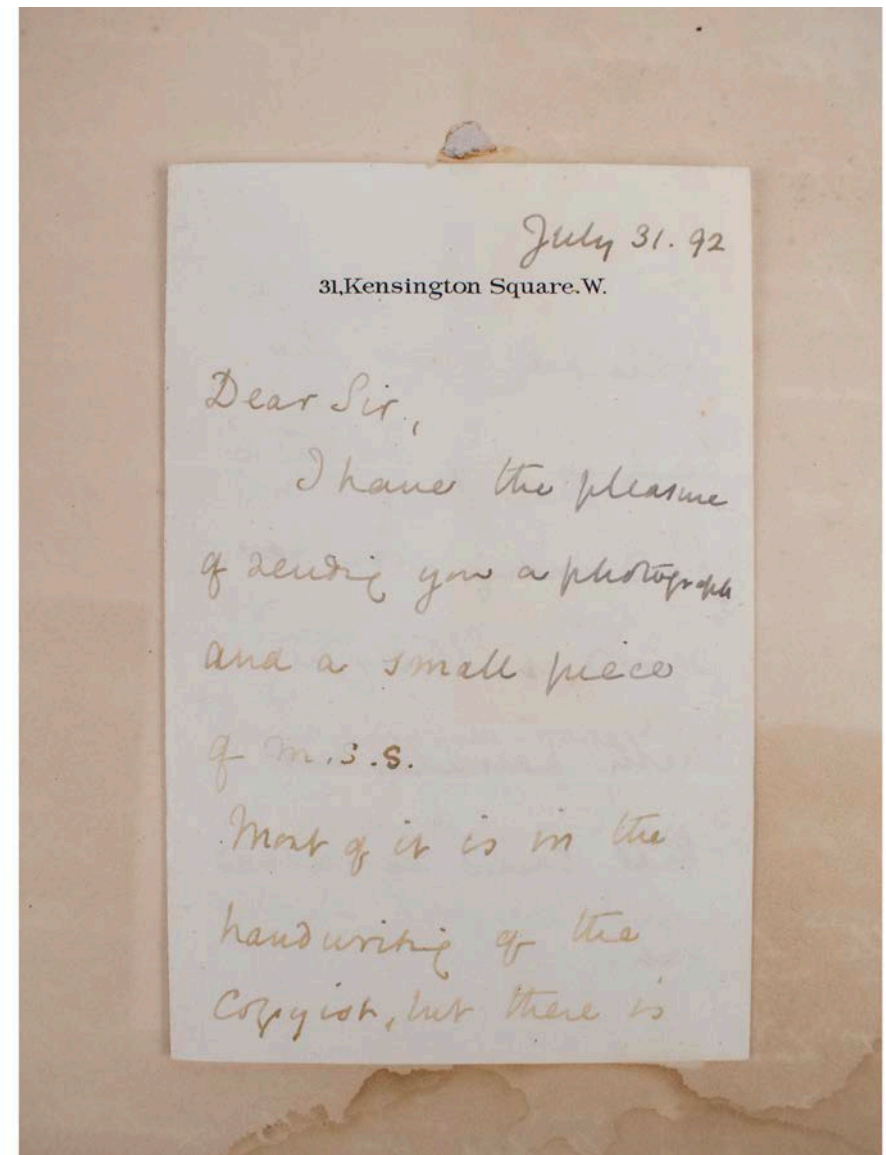 July 31. 92
31,Kensington Square.W.
Dear Sir,
I have the pleasure
of sending you a photograph
and a small piece
of m.s.s.
Most of it is in the
handwriting of the
Copyist, but there is